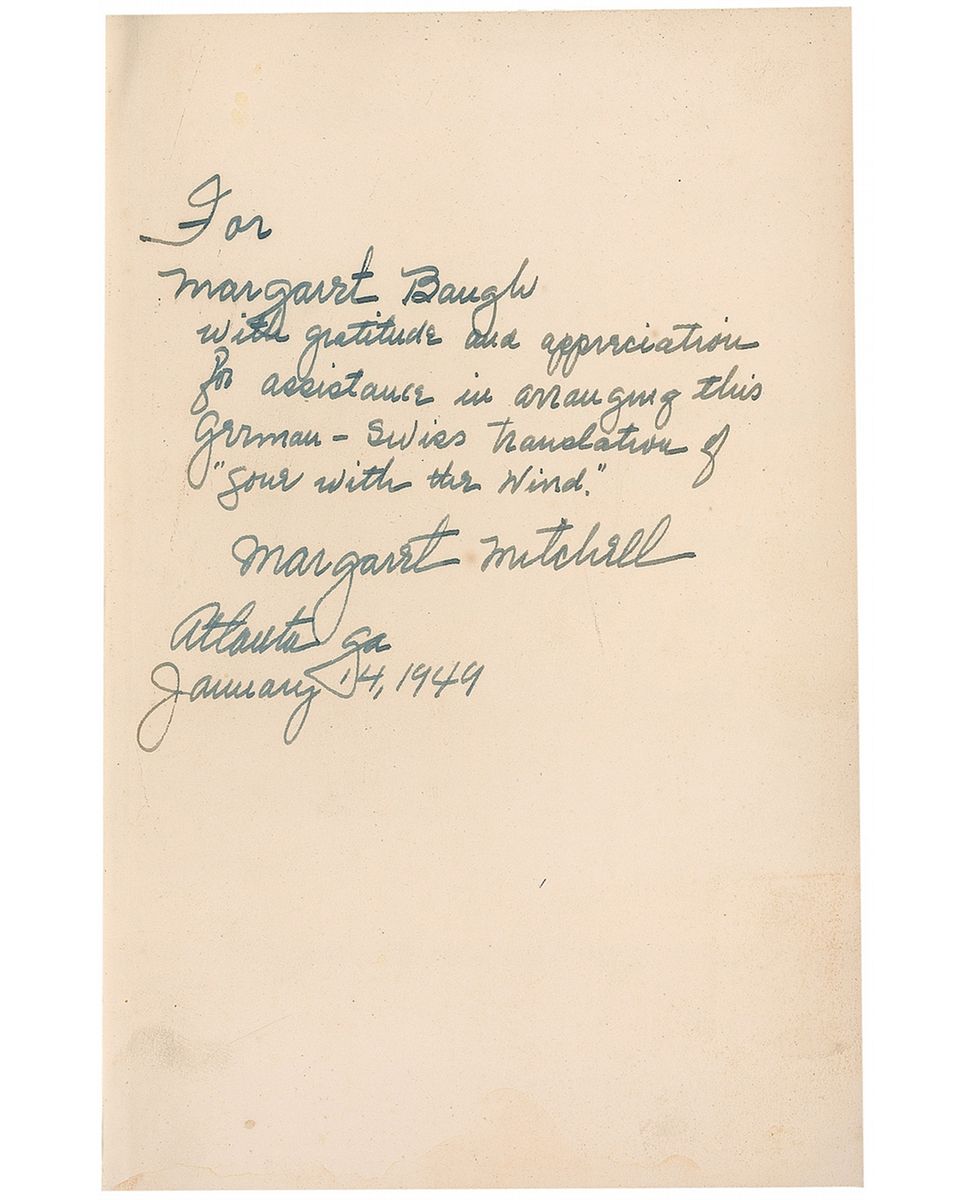 For
Margaret Baugh
with gratitude and appreciation
for assistance in arranging this
German - Swiss translation of
"Gone with the Wind."
Margaret Mitchell
Atlanta Ga
January 14, 1949